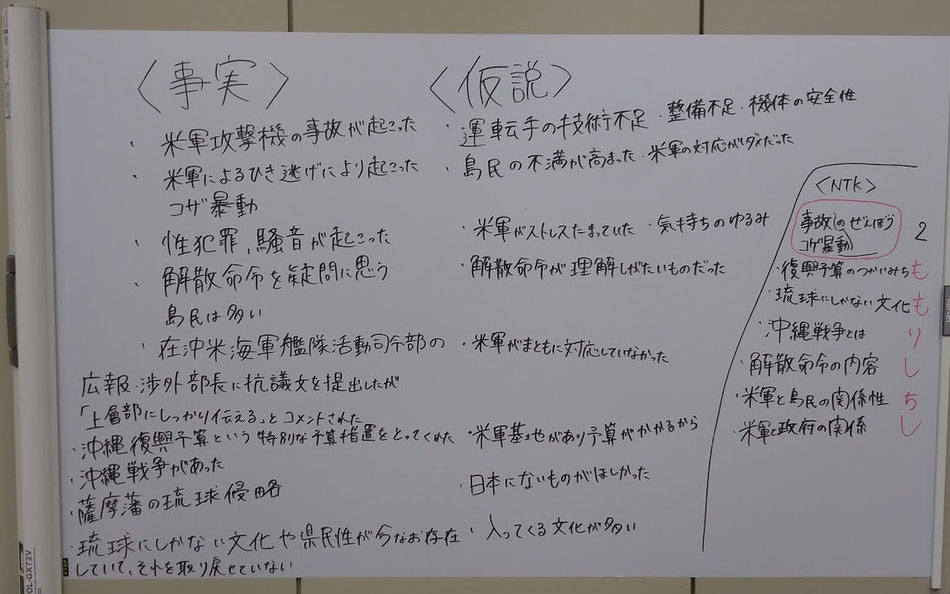 〈事実〉
・米軍攻撃機の事故が起こった
・米軍によるひき逃げにより起こった
コザ暴動
・性犯罪、騒音が起こった
・解散命令を疑問に思う
島民は多い
・在沖米海軍艦隊活動司令部の
広報・渉外部長に抗議文を提出したが
「上層部にしっかり伝える」とコメントされた
・沖縄復興予算という特別な予算措置をとってくれた
・沖縄戦争があった
・薩摩藩の琉球侵略
・琉球にしかない文化や県民性が今なお存在
していて、それを取り戻せていない
〈仮説〉
・運転手の技術不足・整備不足・機体の安全性
・島民の不満が高まった・米軍の対応がダメだった
・米軍がストレスたまっていた・気持ちのゆるみ
・解散命令が理解しがたいものだった
・米軍がまともに対応していなかった
・米軍基地があり予算がかかるから
・日本にないものがほしかった
・入ってくる文化が多い
〈NTK〉
事故のぜんぼう 2
コザ暴動
・復興予算のつかいみち も
・琉球にしかない文化 も
・沖縄戦争とは り
・解散命令の内容 し
・米軍と島民の関係性 ち
・米軍と政府の関係 し
OL-GX72V